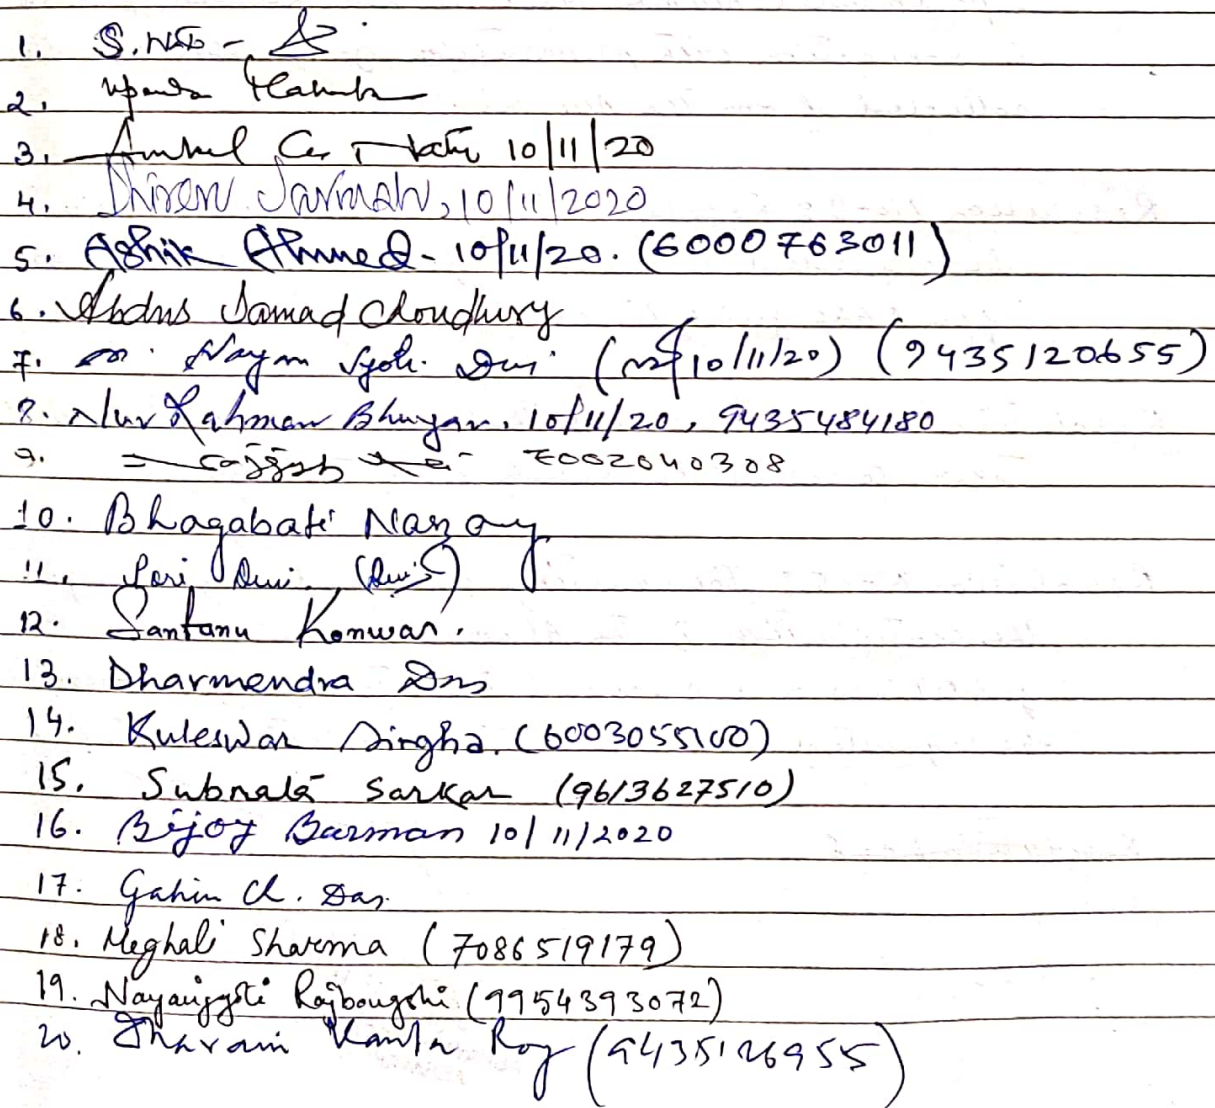 1. S. Nath -
2.
3. 10/11/20
4. Dhiren Sarmah, 10/11/2020
5. Ashik Ahmed - 10/11/20. (6000763011)
6. Abdus Samad Choudhury
7. Nayan Jyoti Devi (10/11/20) (9435120655)
8. Nur Rahman Bhuyan, 10/11/20, 9435484180
9. 7002040308
10. Bhagabati Narzary
11. Devi
12. Santanu Konwar.
13. Dharmendra Das
14. Kuleswar Singha. (6003055100)
15. Subrata Sarkar (9613627510)
16. Bijoy Barman 10/11/2020
17. Gahin Ch. Das
18. Meghali Sharma (7086519179)
19. Nayanjyoti Rajbongshi (9954393072)
20. Kanta Roy (9435126955)